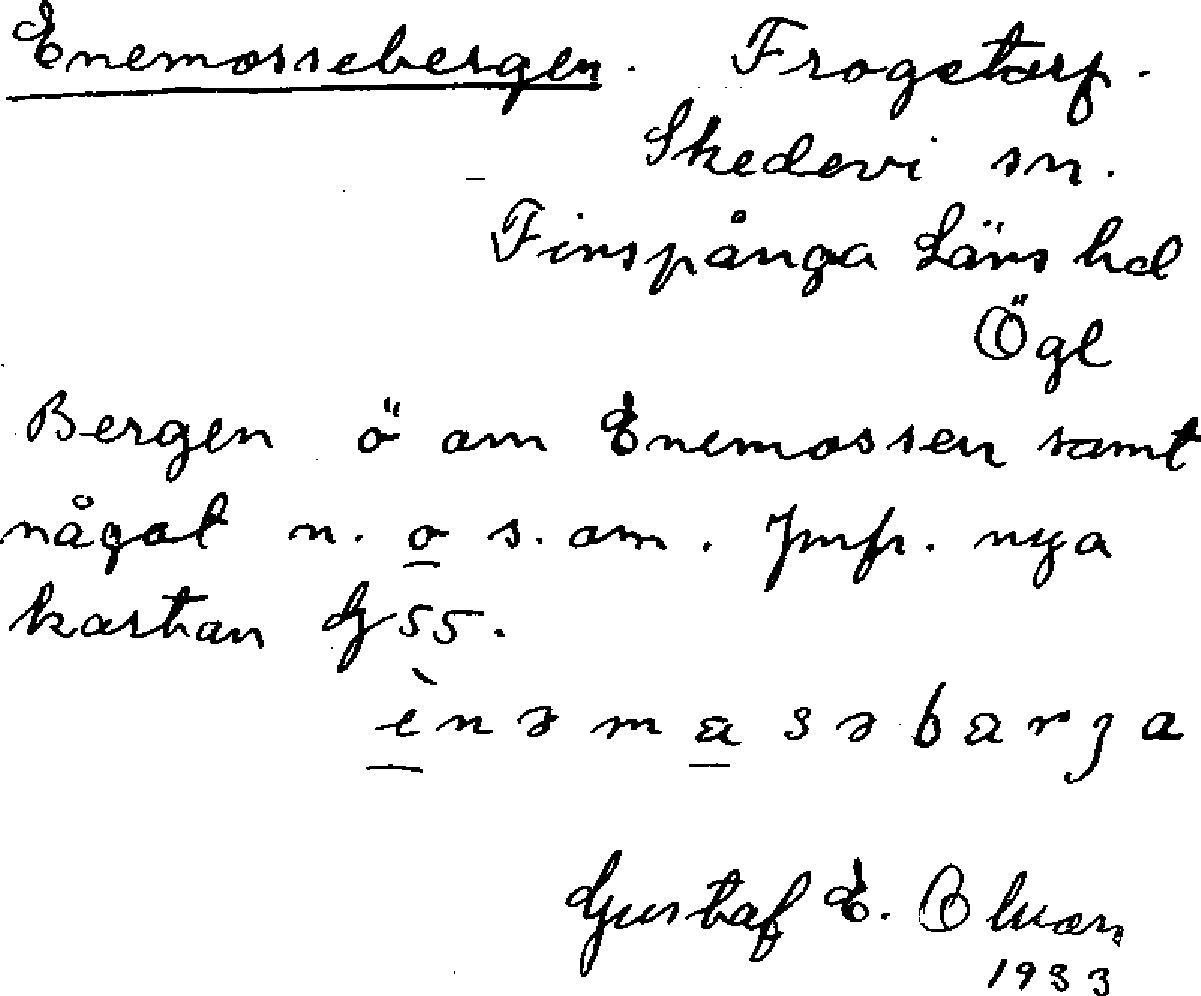 Enemossebergen. Frogstorp.
Skedevi sn.
Finspånga Läns hd
Ögl
Bergen ö om Enemossen samt
något n. o s. om. Jmfr. nya
kartan G 55.
Gustaf E. Olson
1933